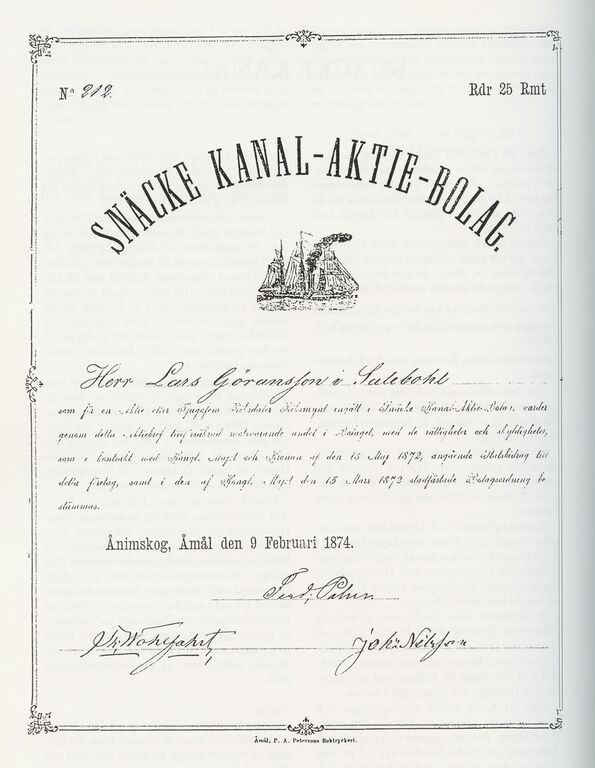 Nº 212.
Rdr 25 Rmt
SNÄCKE KANAL-AKTIE-BOLAG.
Herr Lars Göransson i Salebohl
som för en Aktie eller Tjugofem Riksdaler Riksmynt ingått i Snäcke Kanal-Aktie-Bolag, varder
genom detta Aktiebref tillförsäkrad motsvarande andel i Bolaget, med de rättigheter och skyldigheter,
som i kontrakt med Kongl. Majt och Kronan af den 15 Maj 1872, angående Statsbidrag till
detta företag, samt i den af Kongl. Majt den 15 Mars 1873 stadfästade Bolagsordning be-
stämmas.
Ånimskog, Åmål den 9 Februari 1874.
Ferd,
Wohlfahrt
Joh. Nilsson
Åmål, P. A. Petersons Boktryckeri.